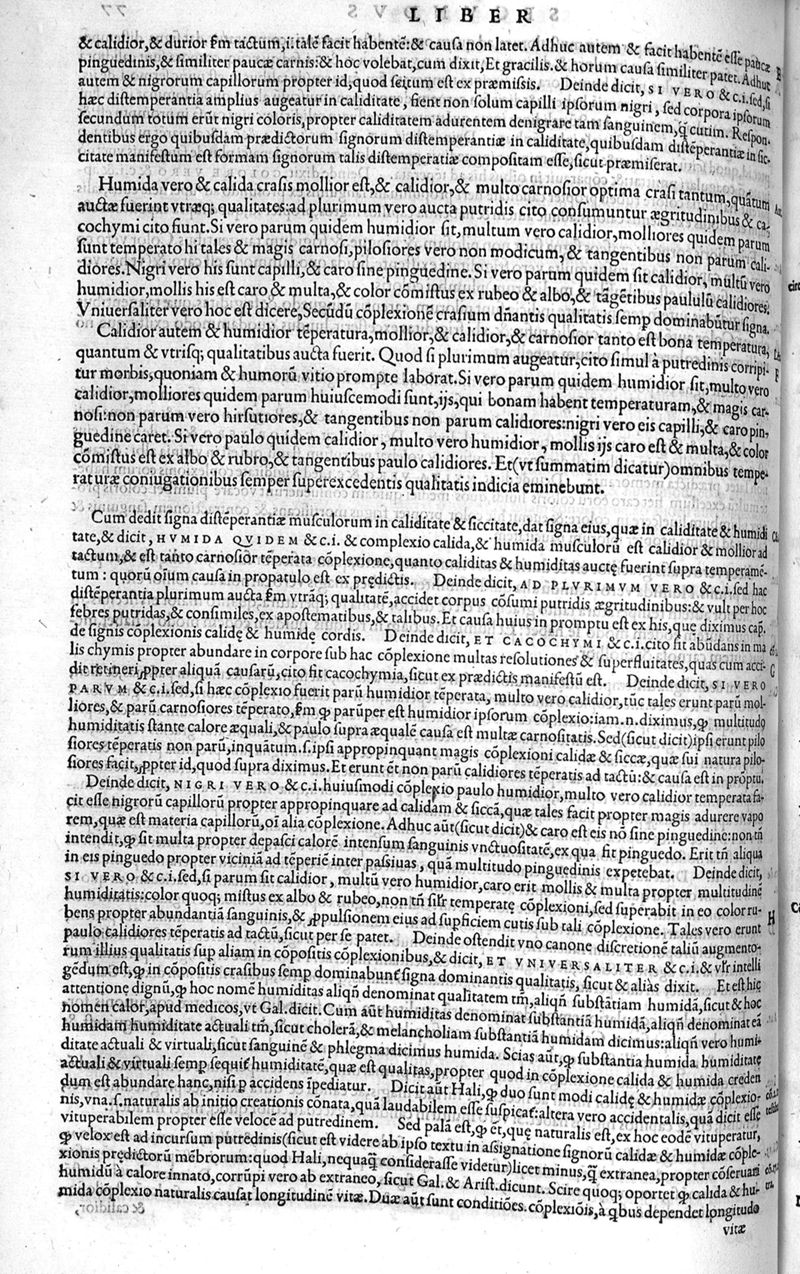 LIBER
& calidior,& durior ſm tactum,i.talẽ facit habentẽ:& cauſa non latet. Adhuc autem & facit habentẽ eſſe paucæ
pinguedinis,& ſimiliter paucæ carnis:& hoc volebat,cum dixit,Et gracilis.& horum cauſa ſimiliter patet. Adhuc
autem & nigrorum capillorum propter id,quod ſcitum eſt ex præmiſsis. Deinde dicit, SI VERO & c.i.ſed,ſi
hæc diſtemperantia amplius augeatur in caliditate , fient non ſolum capilli ipſorum nigri , ſed corpora ipſorum
ſecundum totum erũt nigri coloris,propter caliditatem adurentem denigrare tam ſanguinem,ꝗ̃ cutim. Reſpon-
dentibus ergo quibuſdam prædictorum ſignorum diſtemperantiæ in caliditate, quibuſdam diſtẽperantiæ in ſic-
citate manifeſtum eſt formam ſignorum talis diſtemperatiæ compoſitam eſſe,ſicut præmiſerat.
Humida vero & calida craſis mollior eſt,& calidior,& multo carnoſior optima craſi tantum,quãtum
auctæ fuerint vtræq; qualitates:ad plurimum vero aucta putridis cito conſumuntur ægritudinibus & ca-
cochymi cito fiunt.Si vero parum quidem humidior ſit,multum vero calidior,molliores quidem parum
ſunt temperato hi tales & magis carnoſi,piloſiores vero non modicum, & tangentibus non parum cali-
diores.Nigri vero his ſunt capilli,& caro ſine pinguedine. Si vero parum quidem ſit calidior, multũ vero
humidior,mollis his eſt caro & multa,& color cõmiſtus ex rubeo & albo,& tãgẽtibus paululũ calidiores.
Vniuerſaliter vero hoc eſt dicere,Secũdũ cõplexionẽ craſium dñantis qualitatis ſemp dominabũtur ſigna.
Calidior autem & humidior tẽperatura,mollior,& calidior,& carnoſior tanto eſt bona temperatura,
quantum & vtriſq; qualitatibus aucta fuerit. Quod ſi plurimum augeatur,cito ſimul à putredinis corripi-
tur morbis,quoniam & humorũ vitio prompte laborat.Si vero parum quidem humidior ſit,multo vero
calidior,molliores quidem parum huiuſcemodi ſunt,ijs,qui bonam habent temperaturam,& magis car-
noſi:non parum vero hirſutiores,& tangentibus non parum calidiores:nigri vero eis capilli,& caro pin-
guedine caret. Si vero paulo quidem calidior, multo vero humidior, mollis ijs caro eſt & multa,& color
cõmiſtus eſt ex albo & rubro,& tangentibus paulo calidiores. Et(vt ſummatim dicatur)omnibus tempe-
raturæ coniugationibus ſemper ſuperexcedentis qualitatis indicia eminebunt.
Cum dedit ſigna diſtẽperantiæ muſculorum in caliditate & ſiccitate,dat ſigna eius,quæ in caliditate & humidi
tate,& dicit, HVMIDA QVIDEM & c.i. & complexio calida,& humida muſculorũ eſt calidior & mollior ad
tactum,& eſt tanto carnoſior tẽperata cõplexione,quanto caliditas & humiditas auctę fuerint ſupra temperamẽ-
tum : quorũ oĩum cauſa in propatulo eſt ex prędictis. Deinde dicit, AD PLVRIMVM VERO & c.i.ſed hæc
diſtẽperantia plurimum aucta ſm vtrãq; qualitatẽ,accidet corpus cõſumi putridis ægritudinibus:& vult per hoc
febres putridas,& conſimiles,ex apoſtematibus,& talibus. Et cauſa huius in promptu eſt ex his,quę diximus cap.
de ſignis cõplexionis calidę & humidę cordis. Deinde dicit, ET CACOCHYMI & c.i.cito fit abũdans in ma
lis chymis propter abundare in corpore ſub hac cõplexione multas reſolutiones & ſuperfluitates, quas cum acci-
dit retineri,ꝓpter aliquã cauſarũ,cito fit cacochymia,ſicut ex prædictis manifeſtũ eſt. Deinde dicit,SI VERO
PARVM & c.i.ſed,ſi hæc cõplexio fuerit parũ humidior tẽperata, multo vero calidior,tũc tales erunt parũ mol-
liores,& parũ carnoſiores tẽperato,ſm ꝙ parũper eſt humidior ipſorum cõplexio:iam.n.diximus,ꝙ multitudo
humiditatis ſtante calore æquali,& paulo ſupra æqualẽ cauſa eſt multæ carnoſitatis. Sed(ſicut dicit)ipſi erunt pilo
ſiores tẽperatis non parũ,inquãtum.ſ.ipſi appropinquant magis cõplexioni calidæ & ſiccæ,quæ ſui natura pilo-
ſiores facit,ꝓpter id,quod ſupra diximus.Et erunt ẽt non parũ calidiores tẽperatis ad tactũ:& cauſa eſt in prõptu.
Deinde dicit, NIGRI VERO & c.i.huiuſmodi cõplexio paulo humidior,multo vero calidior temperata fa-
cit eſſe nigrorũ capillorũ propter appropinquare ad calidam & ſiccã,quæ tales facit propter magis adurere vapo
rem,quæ eſt materia capillorũ,oĩ alia cõplexione. Adhuc aũt(ſicut dicit)& caro eſt eis nõ ſine pinguedine:non tñ
intendit,ꝙ ſit multa propter depaſci calorẽ intenſum ſanguinis vnctuoſitatẽ,ex qua fit pinguedo. Erit tñ aliqua
in eis pinguedo propter viciniã ad tẽperiẽ inter paſsiuas , quã multitudo pinguedinis expetebat. Deinde dicit,
SI VERO & c.i.ſed,ſi parum ſit calidior, multũ vero humidior,caro erit mollis & multa propter multitudinẽ
humiditatis:color quoq; miſtus ex albo & rubeo,non tñ ſiłr temperatę cõplexioni,ſed ſuperabit in eo color ru-
bens propter abundantiã ſanguinis,& ꝓpulſionem eius ad ſupficiem cutis ſub tali cõplexione. Tales vero erunt
paulo calidiores tẽperatis ad tactũ,ſicut per ſe patet. Deinde oſtendit vno canone diſcretionẽ taliũ augmento-
rum illius qualitatis ſup aliam in cõpoſitis cõplexionibus,& dicit, ET VNIVERSALITER & c.i.& vłr intelli
gẽdum eſt,ꝙ in cõpoſitis craſibus ſemp dominabunt ſigna dominantis qualitatis, ſicut & alias dixit. Et eſt hic
attentione dignũ,ꝙ hoc nomẽ humiditas aliqñ denominat qualitatem tm̃,aliqñ ſubſtãtiam humidã,ſicut & hoc
nomen calor,apud medicos,vt Gal.dicit.Cum aũt humiditas denominat ſubſtantiã humidã,aliqñ denominat eã
humidam humiditate actuali tm̃,ſicut cholerã,& melancholiam ſubſtantiã humidam dicimus:aliqñ vero humi-
ditate actuali & virtuali,ſicut ſanguinẽ & phlegma dicimus humida. Scias aũt,ꝙ ſubſtantia humida humiditate
actuali & virtuali ſemp ſequit humiditatẽ,quæ eſt qualitas,propter quod in cõplexione calida & humida creden
dum eſt abundare hanc,niſi p accidens ĩpediatur. Dicit aũt Hali,ꝙ duo ſunt modi calidę & humidæ cõplexio-
nis,vna.ſ.naturalis ab initio creationis cõnata,quã laudabilem eſſe ſuſpicat:altera vero accidentalis,quã dicit eſſe
vituperabilem propter eſſe velocẽ ad putredinem. Sed palã eſt,ꝙ et,quę naturalis eſt,ex hoc eodẽ vituperatur,
ꝙ velox eſt ad incurſum putredinis(ſicut eſt videre ab ipſo textu in aſsignatione ſignorũ calidæ & humidæ cõple-
xionis prędictorũ mẽbrorum:quod Hali,nequaꝗ̃ conſideraſſe videtur)licet minus,ꝗ̃ extranea,propter cõſeruari
humidũ à calore innato,corrũpi vero ab extraneo,ſicut Gal.& Ariſt.dicunt. Scire quoq; oportet ꝙ calida & hu-
mida cõplexio naturalis cauſat longitudinẽ vitæ. Duæ aũt ſunt conditiões.cõplexiõis,à ꝗbus dependet longitudo
vitæ